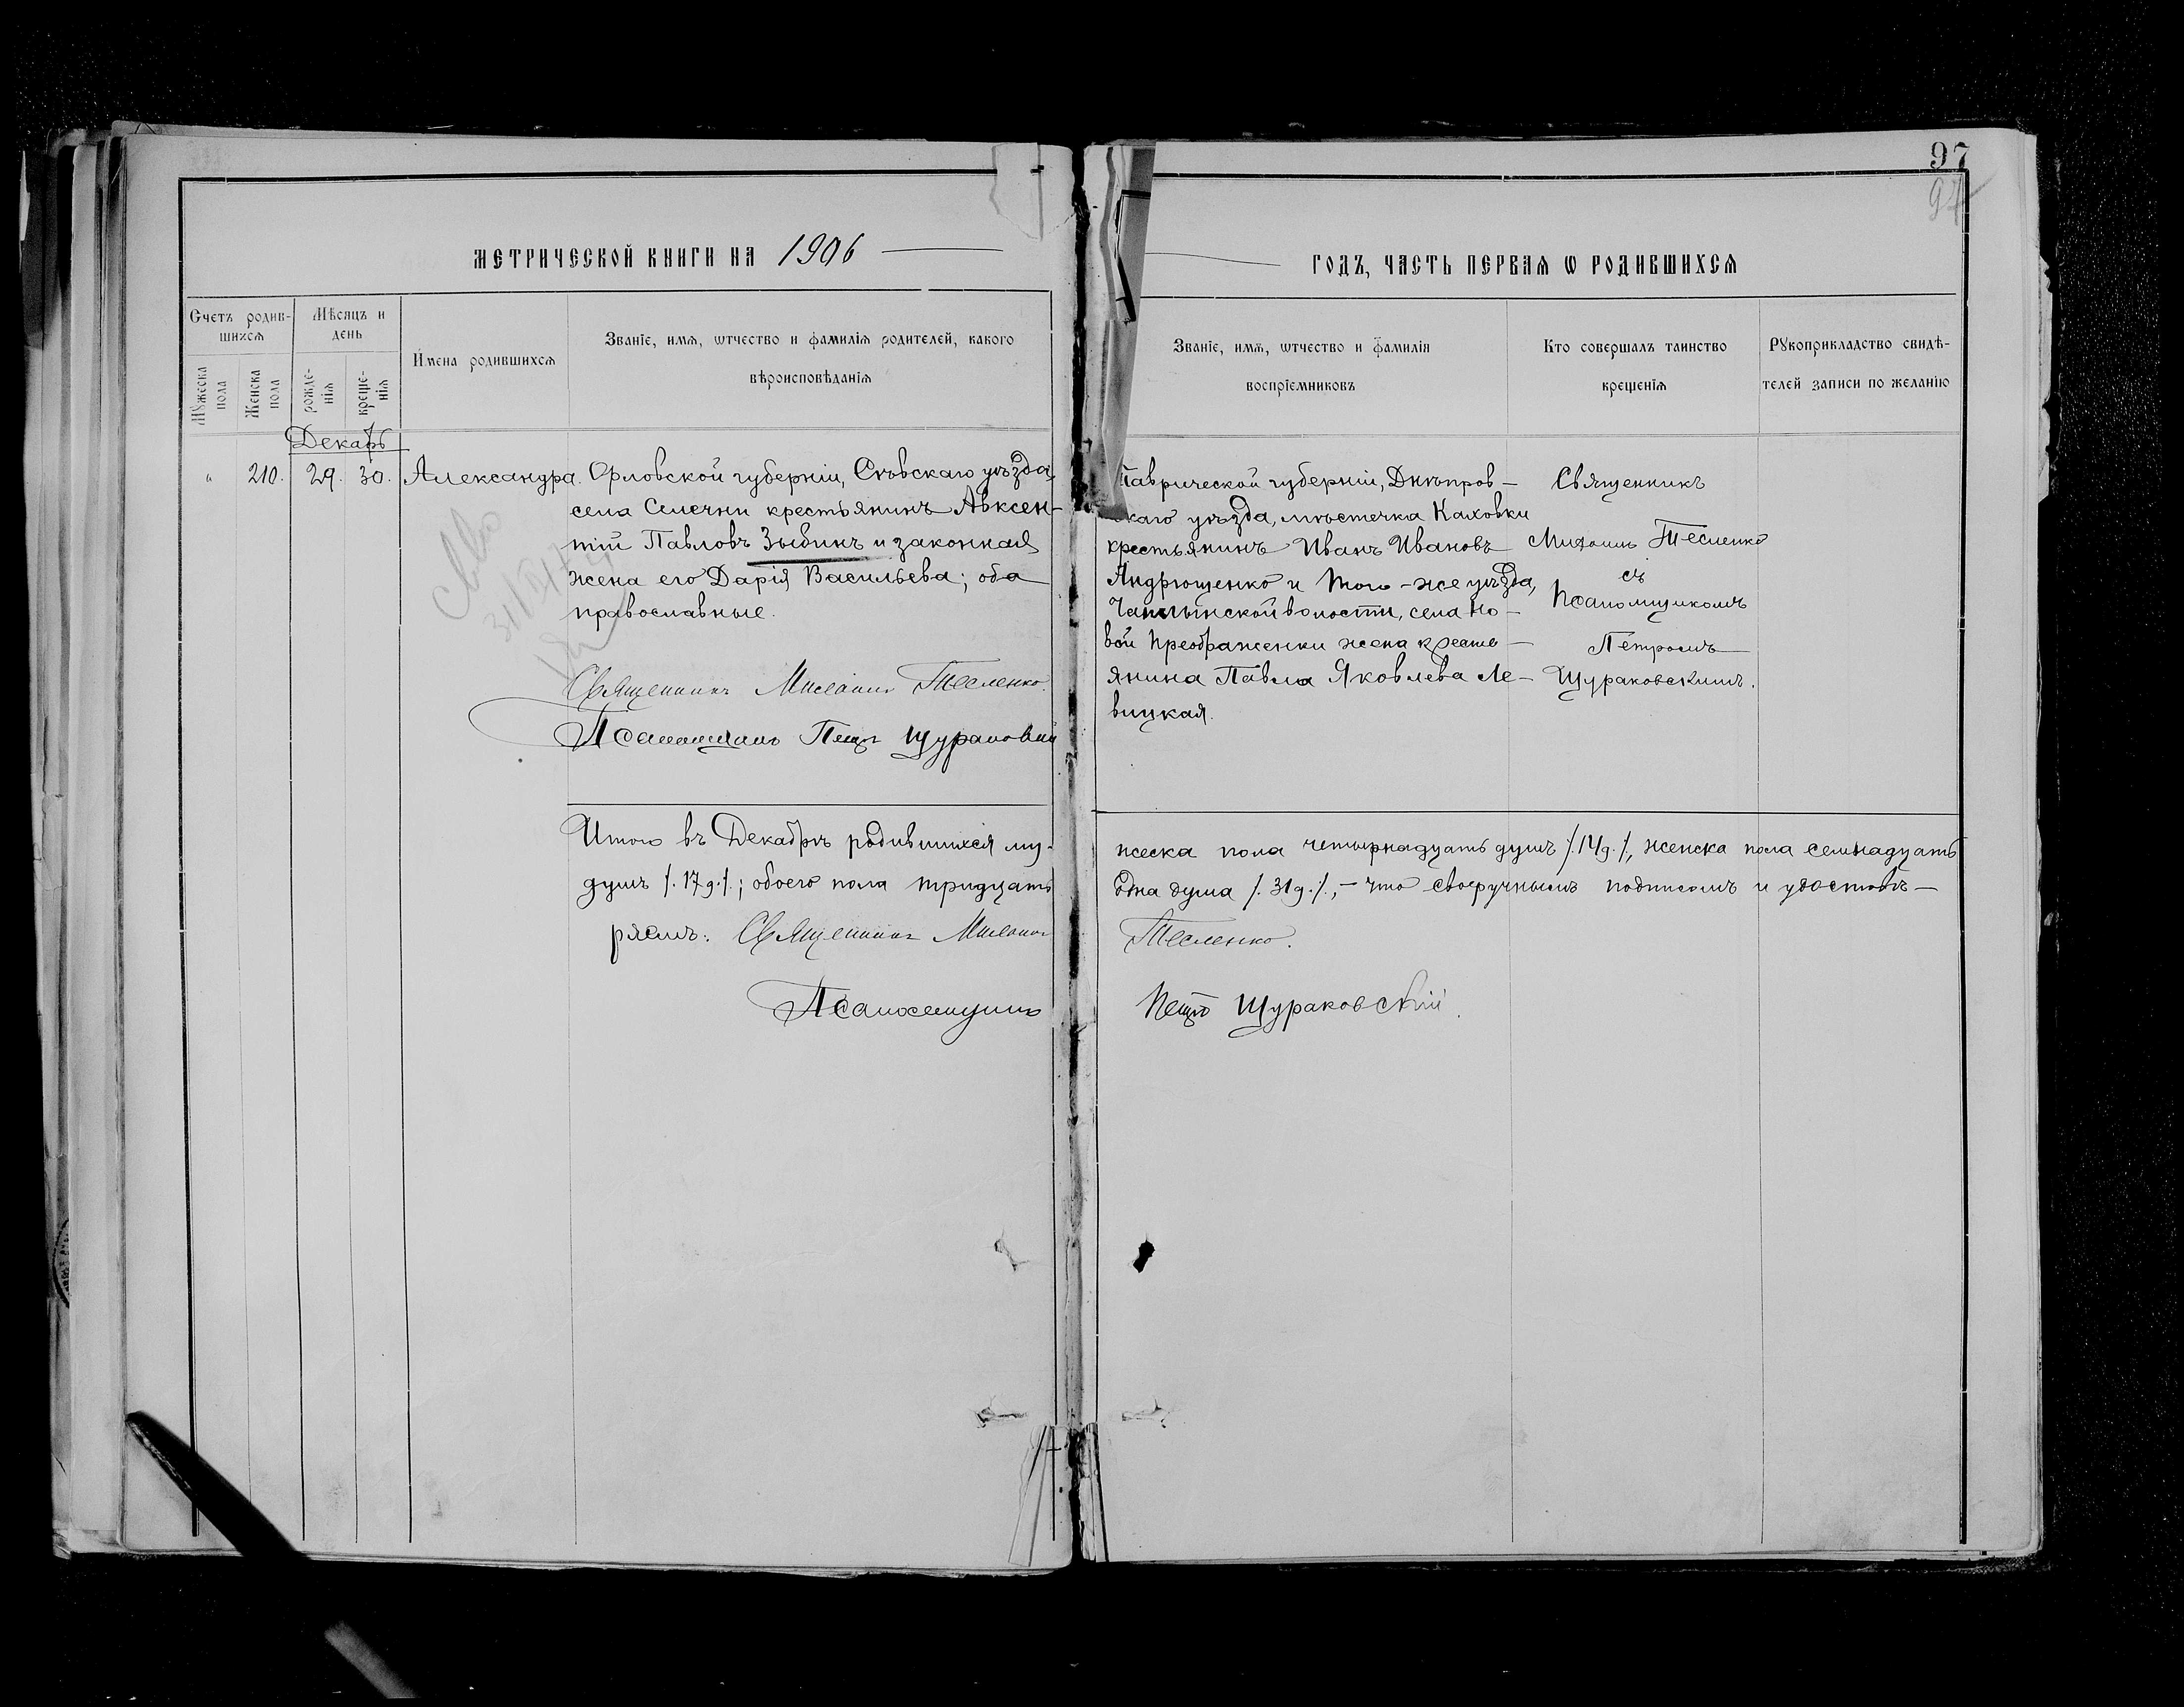 97
97
МЕТРИЧЕСКОЙ КНИГИ НА 1906
ГОДЪ, ЧАСТЬ ПЕРВАЯ Ѡ РОДИВШИХСЯ
Счетъ родив-
шихся
Мѣсяцъ и
день
Имена родившихся
Званіе, имя, ѿтчество и фамилія родителей, какого
вѣроисповѣданія
Мꙋжеска
пола
Женска
пола
рожде-
нія
креще-
нія
Званіе, имя, ѿтчество и фамилія
воспріемниковъ
Кто совершалъ таинство
крещенія
Рꙋкоприкладство свидѣ-
телей записи по желанію
Декабрь
" 210. 29. 30. Александра.
Орловской губерніи, Сѣвскаго уѣзда,
села Селечни крестьянинъ Авксен-
тій Павловъ Зыбинъ и законная
жена его Дарія Васильева; оба
православные.
Священникъ Михаилъ Тесленко.
Псаломщикъ Петръ Щураковскій
Таврической губерніи, Днѣпров-
скаго уѣзда, мѣстечка Каховки
крестьянинъ Иванъ Ивановъ
Андрющенко и того-же уѣзда,
Чаплынской волости, села Но-
вой Преображенки жена кресть-
янина Павла Яковлева Ле-
вицкая.
Священникъ
Михаилъ Тесленко
съ
Псаломщикомъ
Петромъ
Щураковскимъ.
Итого въ Декабрѣ родившихся му-
жеска пола четырнадцать душъ /.14 д./., женска пола семнадцать
душъ /.17 д./.; обоего пола тридцать
одна душа /.31 д./., - что своеручнымъ подписомъ и удостовѣ-
ряемъ: Священникъ Михаилъ
Тесленко.
Псаломщикъ
Петръ Щураковскій.